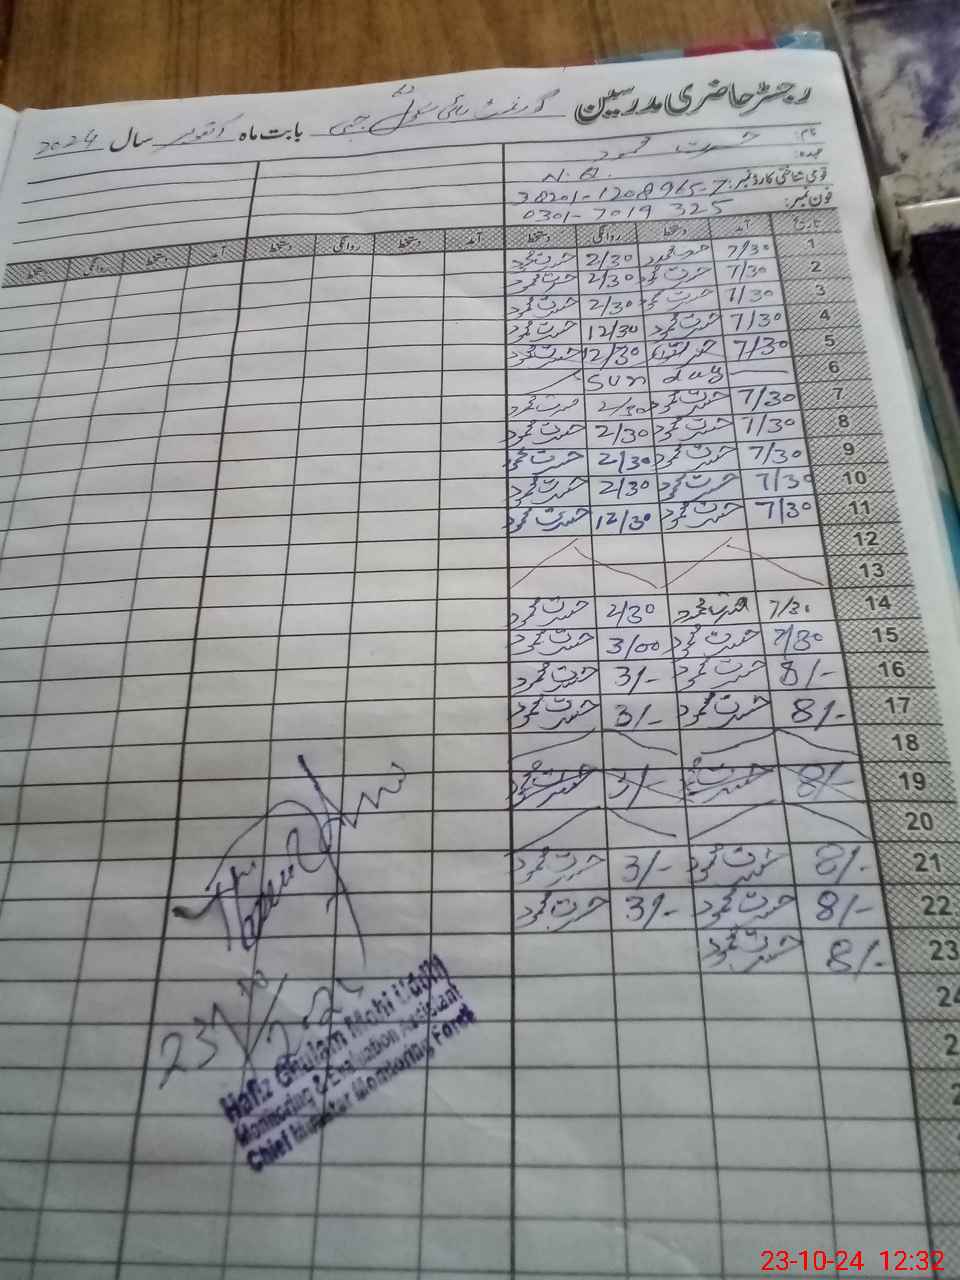 رجسٹر حاضری مدرسین گورنمنٹ ہائی سکول جبی بابت ماہ اکتوبر سال 2024
نام: حسرت محمود
عہدہ: N.Q.
قومی شناختی کارڈ نمبر: 38201-1208965-7
فون نمبر: 0301-7019325
تاریخ آمد دستخط روانگی دستخط آمد دستخط روانگی دستخط آمد دستخط روانگی دستخط
1 7/30 حسرت محمود 2/30 حسرت محمود
2 7/30 حسرت محمود 2/30 حسرت محمود
3 7/30 حسرت محمود 2/30 حسرت محمود
4 7/30 حسرت محمود 12/30 حسرت محمود
5 7/30 حسرت محمود 12/30 حسرت محمود
6 Sun day
7 7/30 حسرت محمود 2/30 حسرت محمود
8 7/30 حسرت محمود 2/30 حسرت محمود
9 7/30 حسرت محمود 2/30 حسرت محمود
10 7/30 حسرت محمود 2/30 حسرت محمود
11 7/30 حسرت محمود 12/30 حسرت محمود
12
13
14 7/30 حسرت محمود 2/30 حسرت محمود
15 7/30 حسرت محمود 3/00 حسرت محمود
16 8/- حسرت محمود 3/- حسرت محمود
17 8/- حسرت محمود 3/- حسرت محمود
18
19 8/- حسرت محمود 3/- حسرت محمود
20
21 8/- حسرت محمود 3/- حسرت محمود
22 8/- حسرت محمود 3/- حسرت محمود
23 8/- حسرت محمود
24
2
2
23/10/2024
Hafiz Ghulam Mohi Uddin
Monitoring & Evaluation Assistant
Chief Minister Monitoring Force
23-10-24 12:32